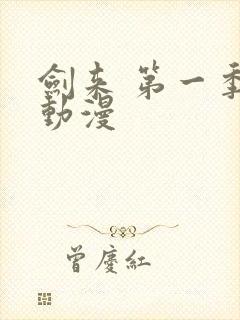 劍来 第一季
動漫
曾慶紅